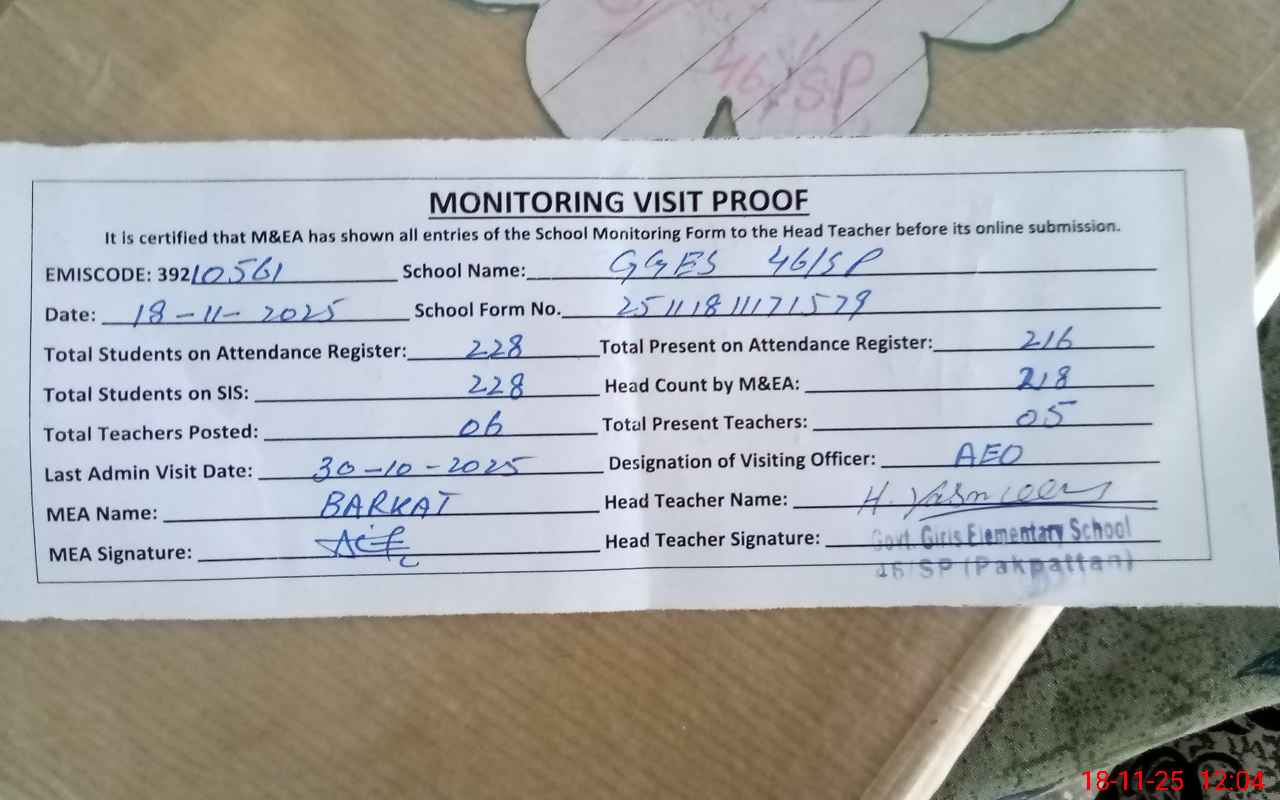 46/SP
MONITORING VISIT PROOF
It is certified that M&EA has shown all entries of the School Monitoring Form to the Head Teacher before its online submission.
EMISCODE: 39210561 School Name: GGES 46/SP
Date: 18-11-2025 School Form No. 25111811171579
Total Students on Attendance Register: 228 Total Present on Attendance Register: 216
Total Students on SIS: 228 Head Count by M&EA: 218
Total Teachers Posted: 06 Total Present Teachers: 05
Last Admin Visit Date: 30-10-2025 Designation of Visiting Officer: AEO
MEA Name: BARKAT Head Teacher Name: H. Yasmeen
MEA Signature: Head Teacher Signature:
Govt. Girls Elementary School
46/SP (Pakpattan)
18-11-25 12:04